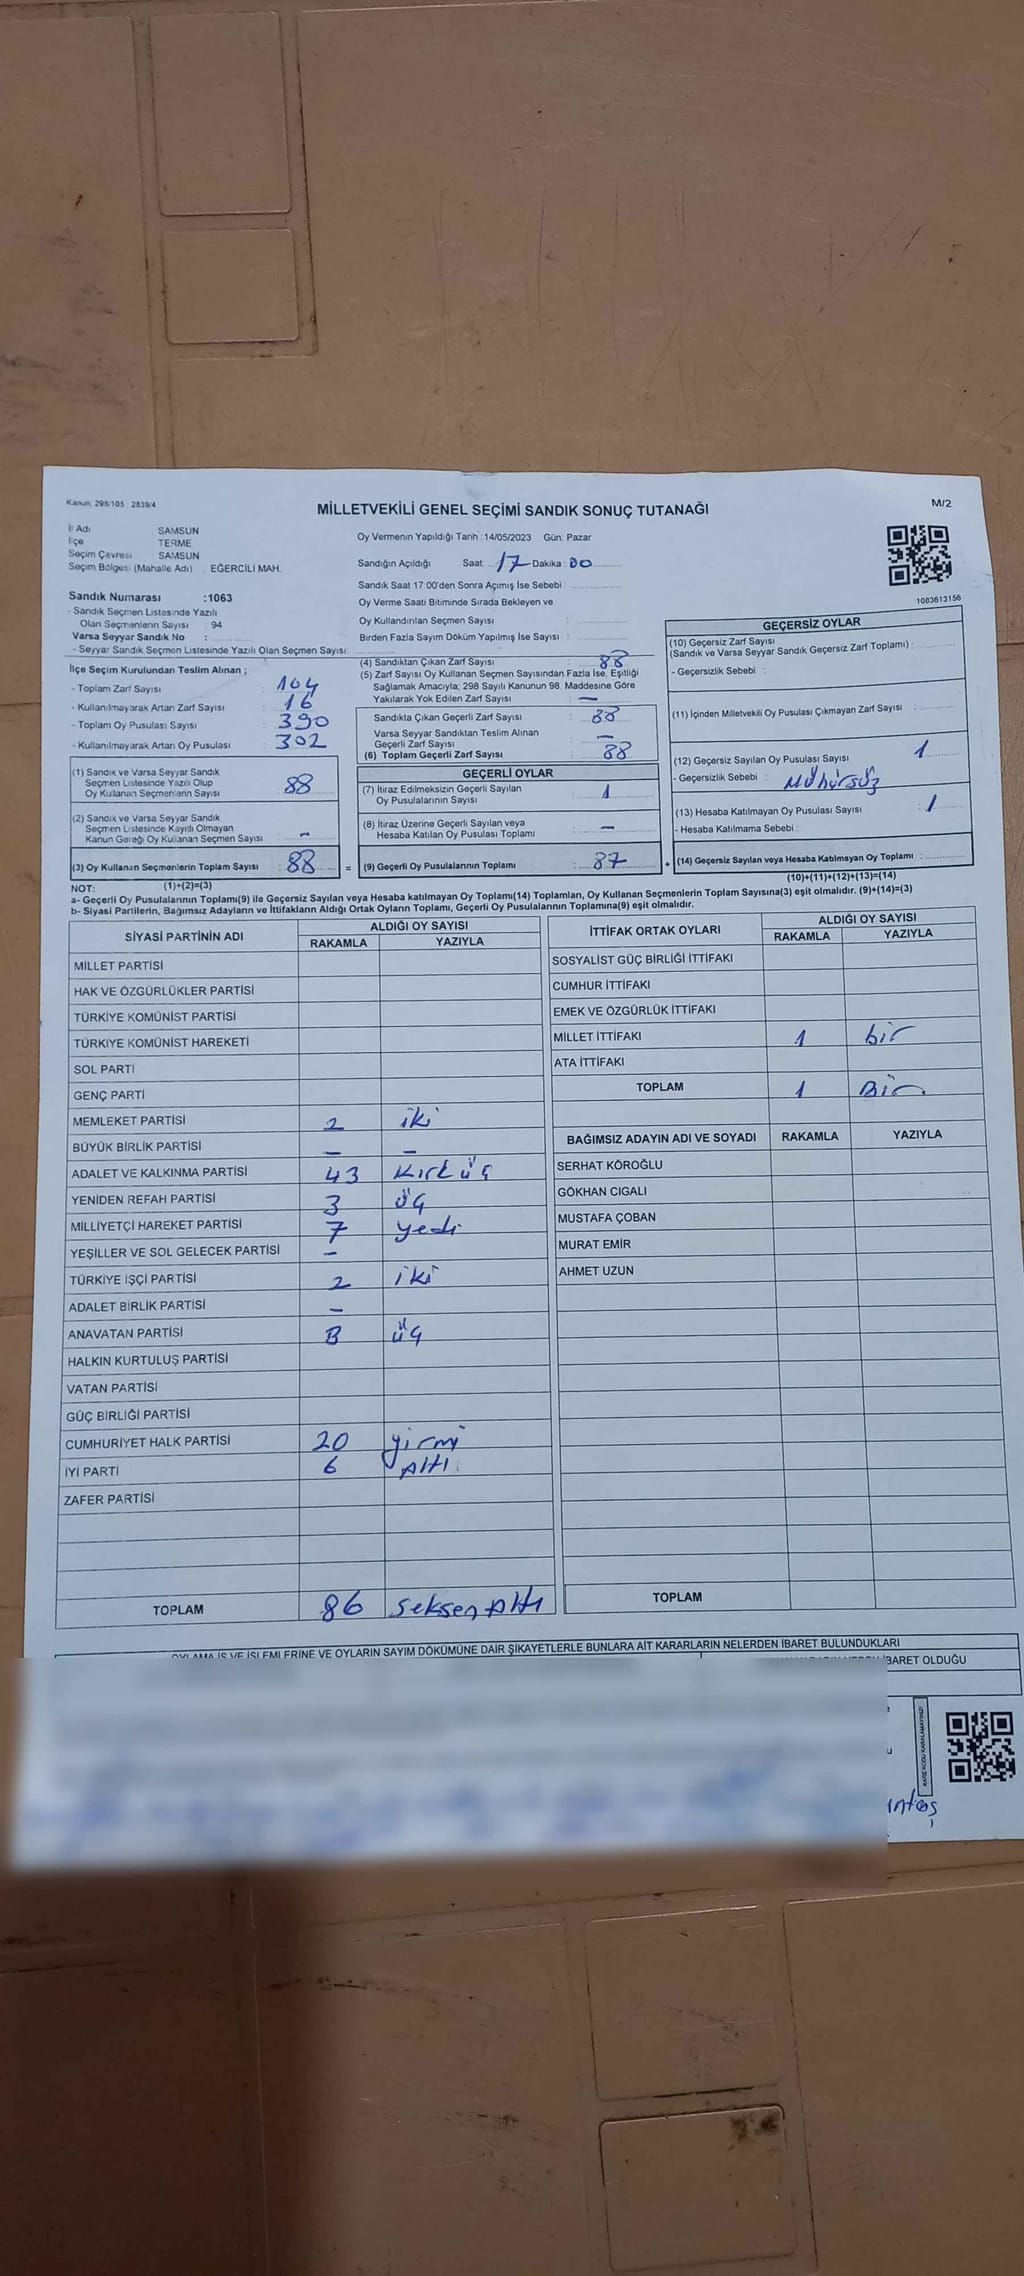 Kanun: 298/105 2839/4
MİLLETVEKİLİ GENEL SEÇİMİ SANDIK SONUÇ TUTANAĞI
M/2
İl Adı SAMSUN
İlçe TERME
Seçim Çevresi SAMSUN
Seçim Bölgesi (Mahalle Adı) EĞERCİLİ MAH.
Sandık Numarası :1063
- Sandık Seçmen Listesinde Yazılı
Olan Seçmenlerin Sayısı : 94
Varsa Seyyar Sandık No :
- Seyyar Sandık Seçmen Listesinde Yazılı Olan Seçmen Sayısı :
Oy Vermenin Yapıldığı Tarih :14/05/2023 Gün: Pazar
Sandığın Açıldığı Saat 17 Dakika :00
Sandık Saat 17:00'den Sonra Açımış İse Sebebi :
Oy Verme Saati Bitiminde Sırada Bekleyen ve
Oy Kullandırılan Seçmen Sayısı :
Birden Fazla Sayım Döküm Yapılmış İse Sayısı :
1083613156
İlçe Seçim Kurulundan Teslim Alınan ;
- Toplam Zarf Sayısı : 104
- Kullanılmayarak Artan Zarf Sayısı : 16
- Toplam Oy Pusulası Sayısı : 390
- Kullanılmayarak Artan Oy Pusulası : 302
(1) Sandık ve Varsa Seyyar Sandık
Seçmen Listesinde Yazılı Olup
Oy Kullanan Seçmenlerin Sayısı : 88
(2) Sandık ve Varsa Seyyar Sandık
Seçmen Listesinde Kayıtlı Olmayan
Kanun Gereği Oy Kullanan Seçmen Sayısı : -
(3) Oy Kullanan Seçmenlerin Toplam Sayısı : 88
(1)+(2)=(3)
(4) Sandıktan Çıkan Zarf Sayısı : 88
(5) Zarf Sayısı Oy Kullanan Seçmen Sayısından Fazla İse, Eşitliği
Sağlamak Amacıyla; 298 Sayılı Kanunun 98. Maddesine Göre
Yakılarak Yok Edilen Zarf Sayısı : -
Sandıkta Çıkan Geçerli Zarf Sayısı : 88
Varsa Seyyar Sandıktan Teslim Alınan
Geçerli Zarf Sayısı : -
(6) Toplam Geçerli Zarf Sayısı : 88
GEÇERLİ OYLAR
(7) İtiraz Edilmeksizin Geçerli Sayılan
Oy Pusulalarının Sayısı : 1
(8) İtiraz Üzerine Geçerli Sayılan veya
Hesaba Katılan Oy Pusulası Toplamı : -
= (9) Geçerli Oy Pusulalarının Toplamı : 87
GEÇERSİZ OYLAR
(10) Geçersiz Zarf Sayısı
(Sandık ve Varsa Seyyar Sandık Geçersiz Zarf Toplamı) :
- Geçersizlik Sebebi :
(11) İçinden Milletvekili Oy Pusulası Çıkmayan Zarf Sayısı :
(12) Geçersiz Sayılan Oy Pusulası Sayısı : 1
- Geçersizlik Sebebi : Mühürsüz
(13) Hesaba Katılmayan Oy Pusulası Sayısı : 1
- Hesaba Katılmama Sebebi :
+ (14) Geçersiz Sayılan veya Hesaba Katılmayan Oy Toplamı :
(10)+(11)+(12)+(13)=(14)
NOT:
a- Geçerli Oy Pusulalarının Toplamı(9) ile Geçersiz Sayılan veya Hesaba katılmayan Oy Toplamı(14) Toplamları, Oy Kullanan Seçmenlerin Toplam Sayısına(3) eşit olmalıdır. (9)+(14)=(3)
b- Siyasi Partilerin, Bağımsız Adayların ve İttifakların Aldığı Ortak Oyların Toplamı, Geçerli Oy Pusulalarının Toplamına(9) eşit olmalıdır.
SİYASİ PARTİNİN ADI ALDIĞI OY SAYISI
RAKAMLA YAZIYLA
MİLLET PARTİSİ
HAK VE ÖZGÜRLÜKLER PARTİSİ
TÜRKİYE KOMÜNİST PARTİSİ
TÜRKİYE KOMÜNİST HAREKETİ
SOL PARTİ
GENÇ PARTİ
MEMLEKET PARTİSİ 2 iki
BÜYÜK BİRLİK PARTİSİ - -
ADALET VE KALKINMA PARTİSİ 43 Kırk üç
YENİDEN REFAH PARTİSİ 3 üç
MİLLİYETÇİ HAREKET PARTİSİ 7 yedi
YEŞİLLER VE SOL GELECEK PARTİSİ -
TÜRKİYE İŞÇİ PARTİSİ 2 iki
ADALET BİRLİK PARTİSİ -
ANAVATAN PARTİSİ 3 üç
HALKIN KURTULUŞ PARTİSİ
VATAN PARTİSİ
GÜÇ BİRLİĞİ PARTİSİ
CUMHURİYET HALK PARTİSİ 20 yirmi
İYİ PARTİ 6 Altı
ZAFER PARTİSİ
TOPLAM 86 seksen Altı
İTTİFAK ORTAK OYLARI ALDIĞI OY SAYISI
RAKAMLA YAZIYLA
SOSYALİST GÜÇ BİRLİĞİ İTTİFAKI
CUMHUR İTTİFAKI
EMEK VE ÖZGÜRLÜK İTTİFAKI
MİLLET İTTİFAKI 1 bir
ATA İTTİFAKI
TOPLAM 1 Bir
BAĞIMSIZ ADAYIN ADI VE SOYADI RAKAMLA YAZIYLA
SERHAT KÖROĞLU
GÖKHAN CIGALI
MUSTAFA ÇOBAN
MURAT EMİR
AHMET UZUN
TOPLAM
OYLAMA İŞ VE İŞLEMLERİNE VE OYLARIN SAYIM DÖKÜMÜNE DAİR ŞİKAYETLERLE BUNLARA AİT KARARLARIN NELERDEN İBARET BULUNDUKLARI
İBARET OLDUĞU
KARE KODU KARALAMAYINIZ!